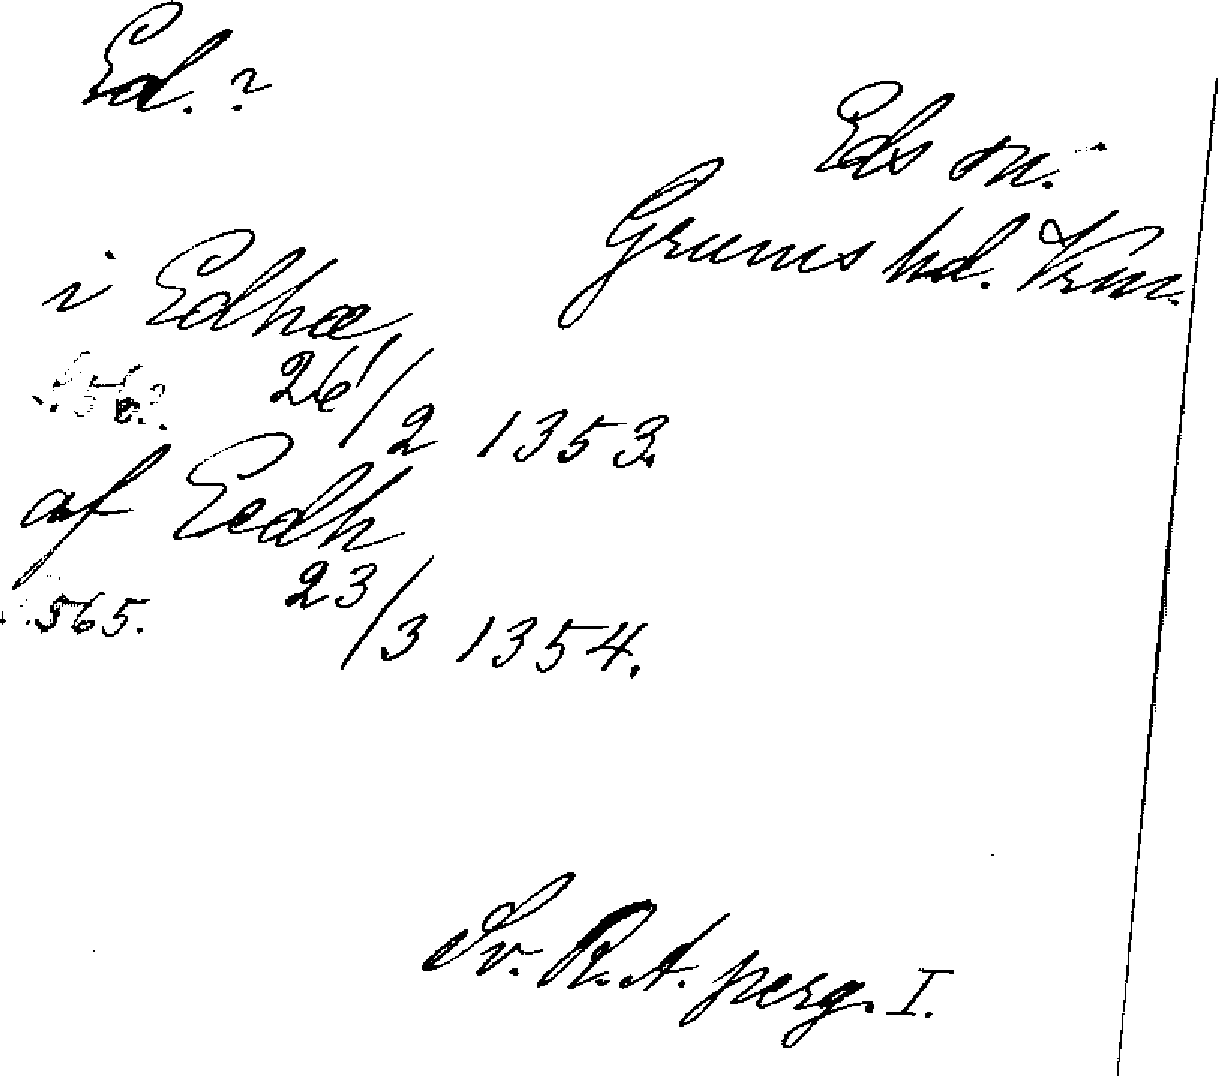 Ed. ?
Eds sn.
Grums hd. Vrm.
i Edhæ
26/2 1353.
af Eedh
565. 23/3 1354.
Sv. R. A. perg. I.